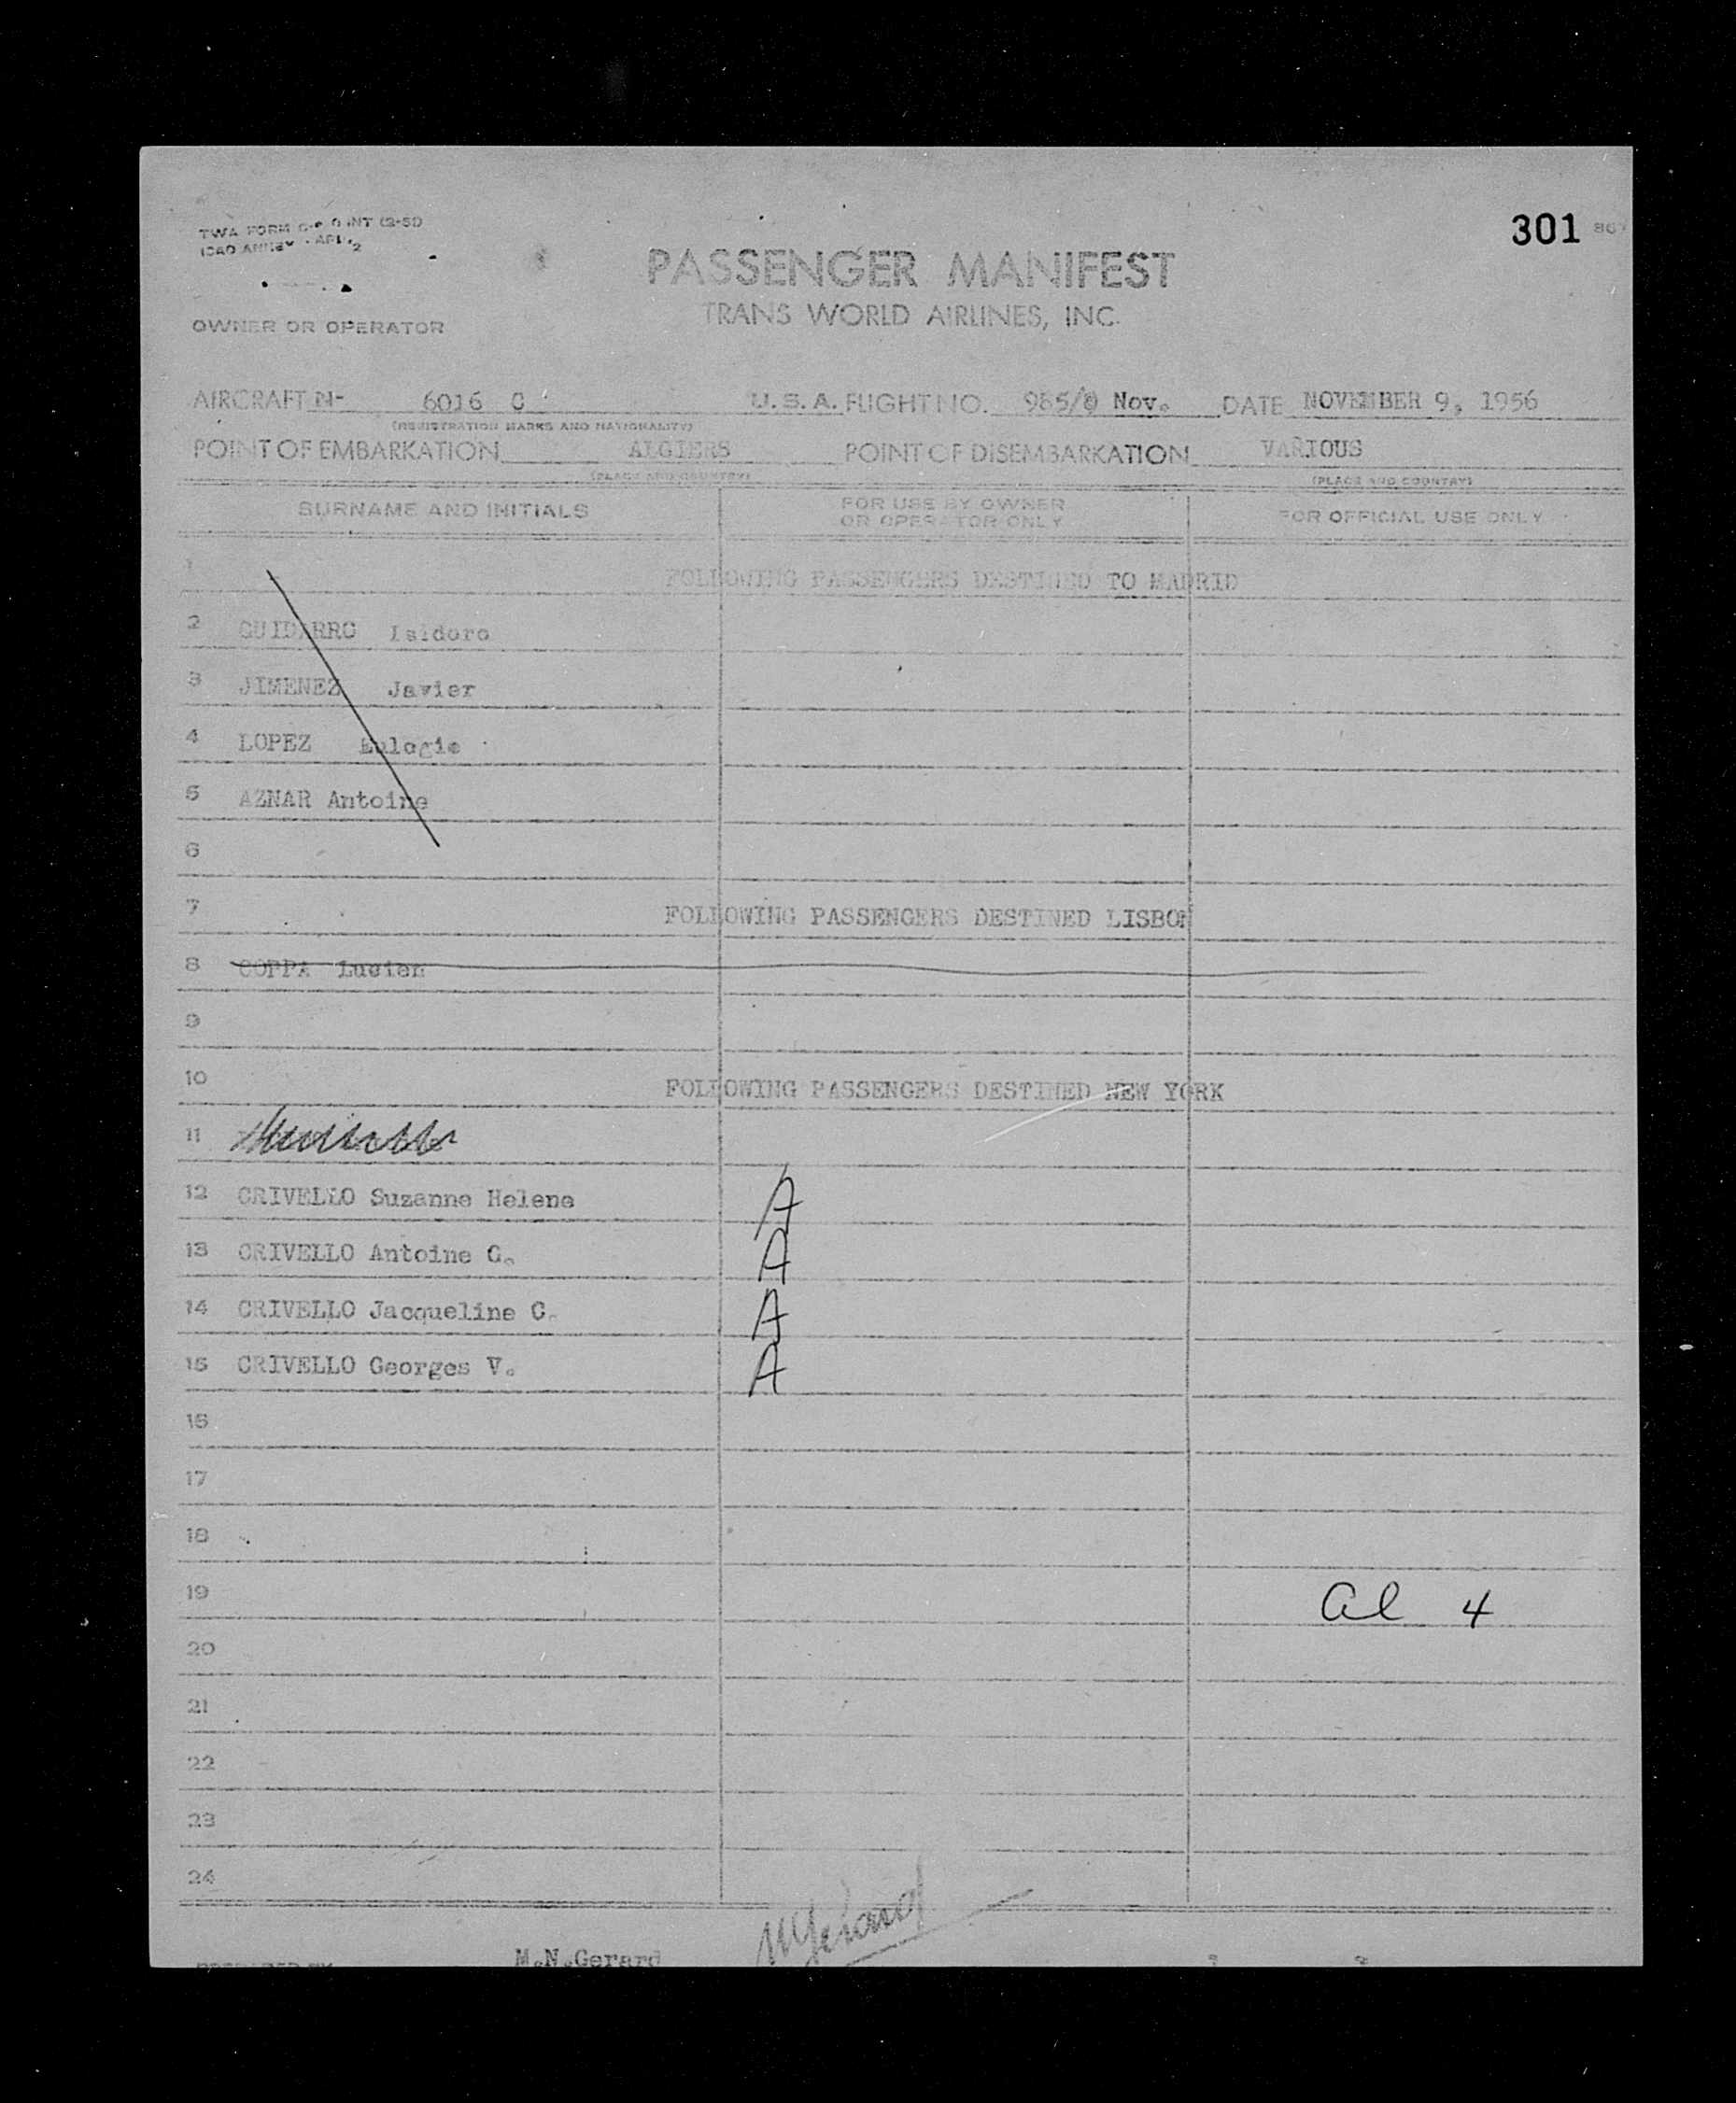 301
TWA FORM
OWNER OR OPERATOR
PASSENGER MANIFEST
TRANS WORLD AIRLINES, INC.
AIRCRAFT N- 6016 C U.S.A. FLIGHT NO. 965/ Nov. DATE NOVEMBER 9, 1956
(REGISTRATION MARKS AND NATIONALITY)
POINT OF EMBARKATION ALGIERS POINT OF DISEMBARKATION VARIOUS
(PLACE AND COUNTRY) (PLACE AND COUNTRY)
SURNAME AND INITIALS FOR USE BY OWNER OR OPERATOR ONLY FOR OFFICIAL USE ONLY
1 FOLLOWING PASSENGERS DESTINED TO MADRID
2 GUIDARRO Isidoro
3 JIMENEZ Javier
4 LOPEZ Eulogie
5 AZNAR Antoine
6
7 FOLLOWING PASSENGERS DESTINED LISBON
8 COPPA Lucien
9
10 FOLLOWING PASSENGERS DESTINED NEW YORK
11
12 CRIVELLO Suzanne Helene A
13 CRIVELLO Antoine G. A
14 CRIVELLO Jacqueline C. A
15 CRIVELLO Georges V. A
16
17
18
19 al 4
20
21
22
23
24
M.N.Gerard MGerard